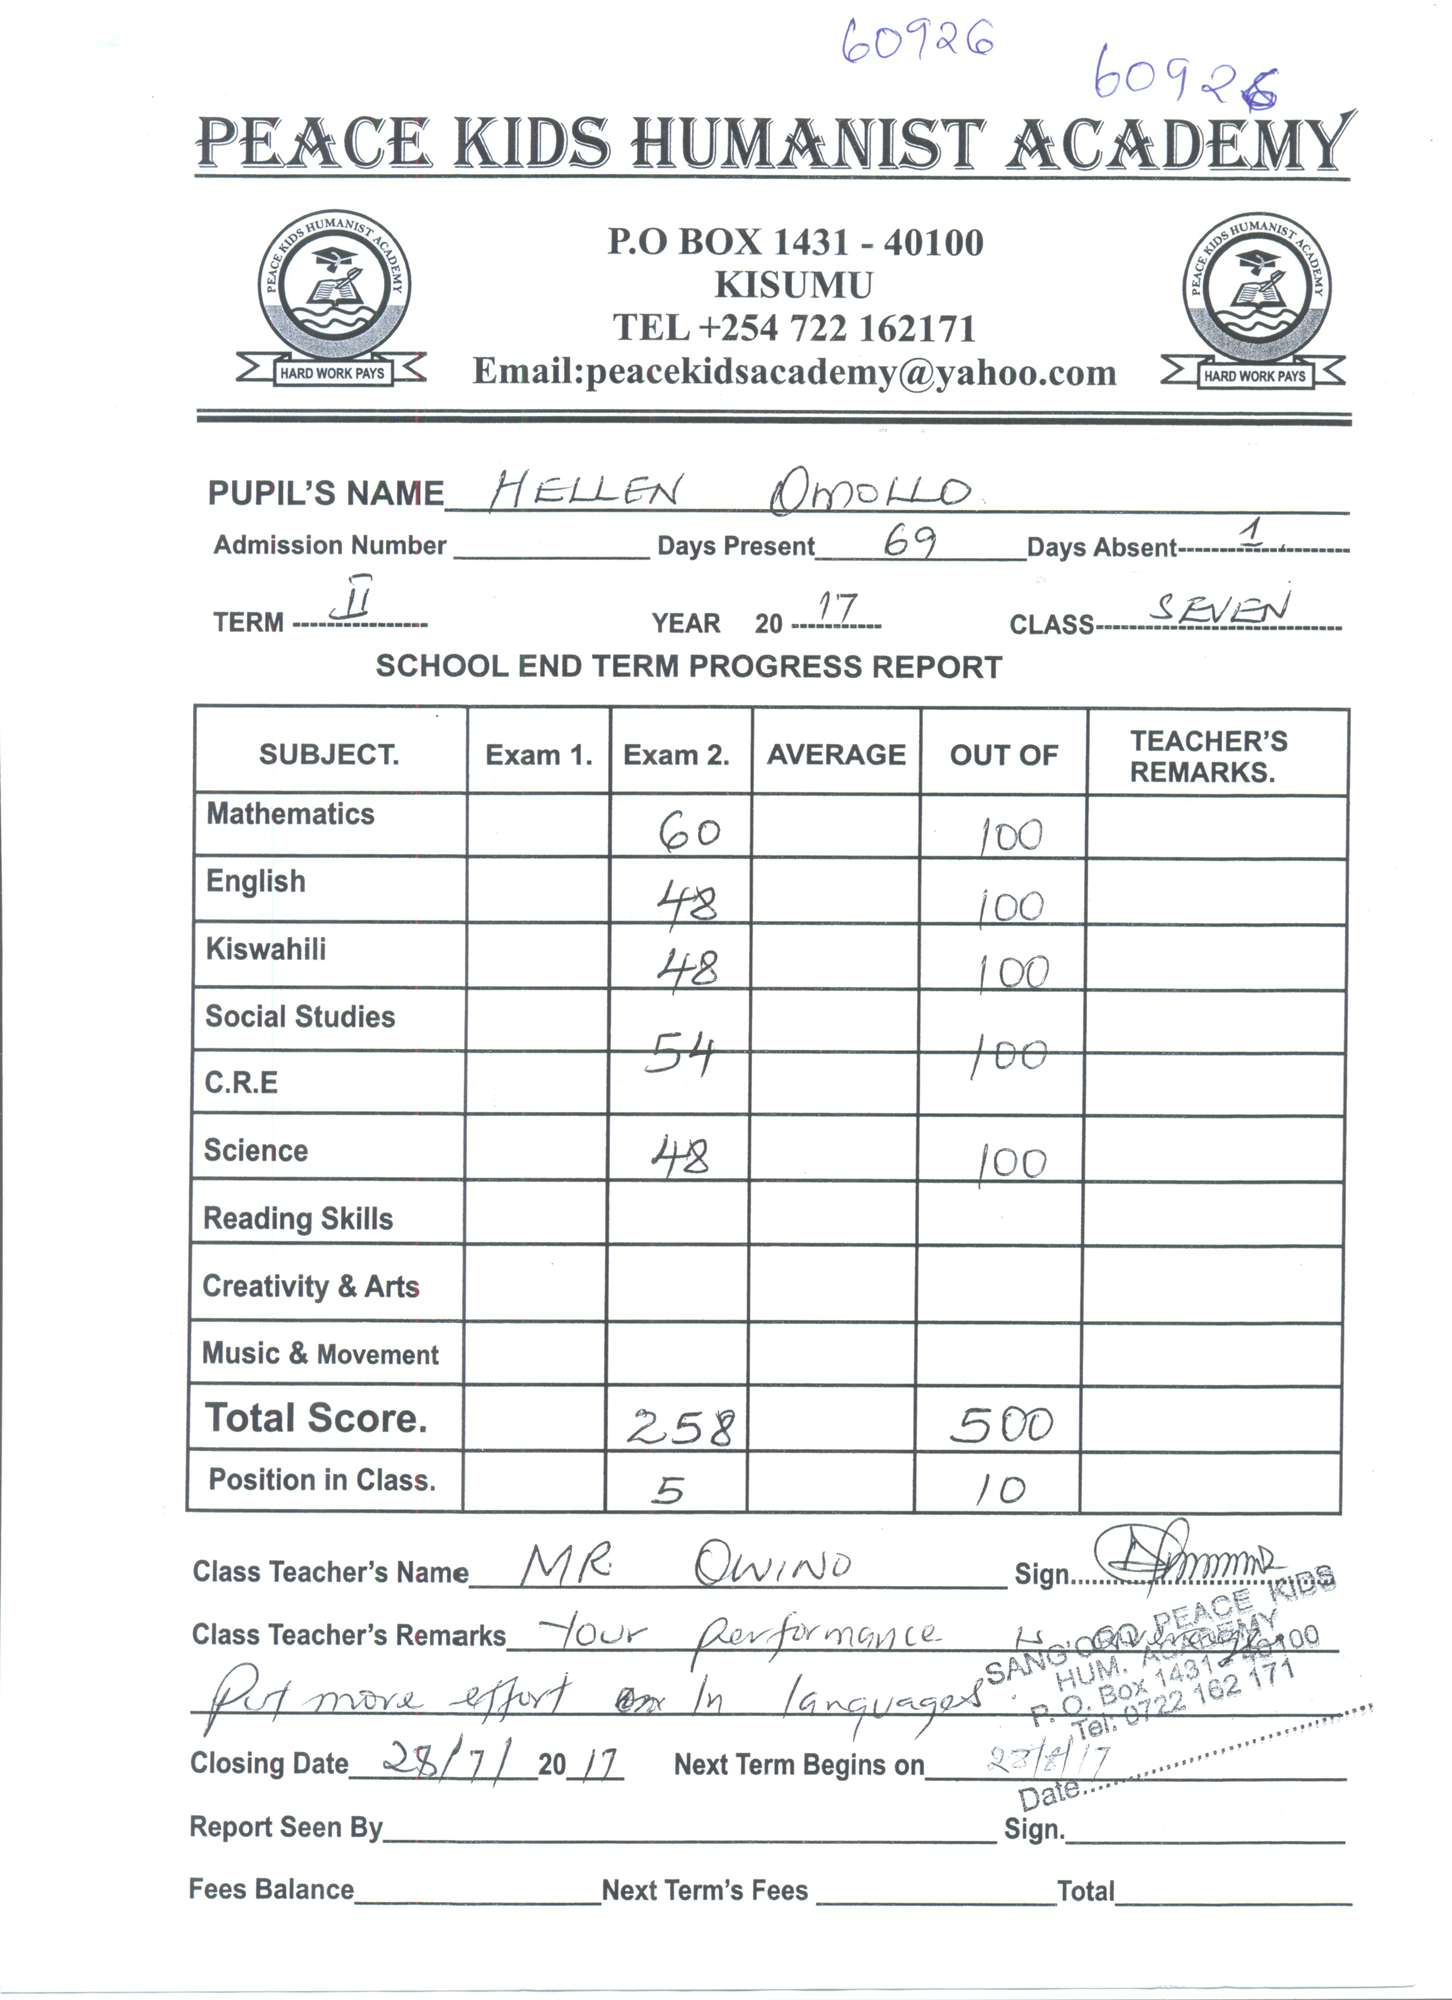 60926
60926
PEACE KIDS HUMANIST ACADEMY
PEACE KIDS HUMANIST ACADEMY
HARD WORK PAYS
P.O BOX 1431 - 40100
KISUMU
TEL +254 722 162171
Email:peacekidsacademy@yahoo.com
PEACE KIDS HUMANIST ACADEMY
HARD WORK PAYS
PUPIL'S NAME HELLEN OMOLLO
Admission Number Days Present 69 Days Absent 1
TERM II YEAR 2017 CLASS SEVEN
SCHOOL END TERM PROGRESS REPORT
SUBJECT. Exam 1. Exam 2. AVERAGE OUT OF TEACHER'S REMARKS.
Mathematics 60 100
English 48 100
Kiswahili 48 100
Social Studies
54 100
C.R.E
Science 48 100
Reading Skills
Creativity & Arts
Music & Movement
Total Score. 258 500
Position in Class. 5 10
Class Teacher's Name MR. OWINO Sign.
Class Teacher's Remarks Your performance is
Put more effort in languages.
SANG'ORO PEACE KIDS
HUM. ACADEMY
P. O. Box 1431 - 40100
Tel: 0722 162 171
Date
Closing Date 28/7/ 2017 Next Term Begins on 28/8/17
Report Seen By Sign.
Fees Balance Next Term's Fees Total